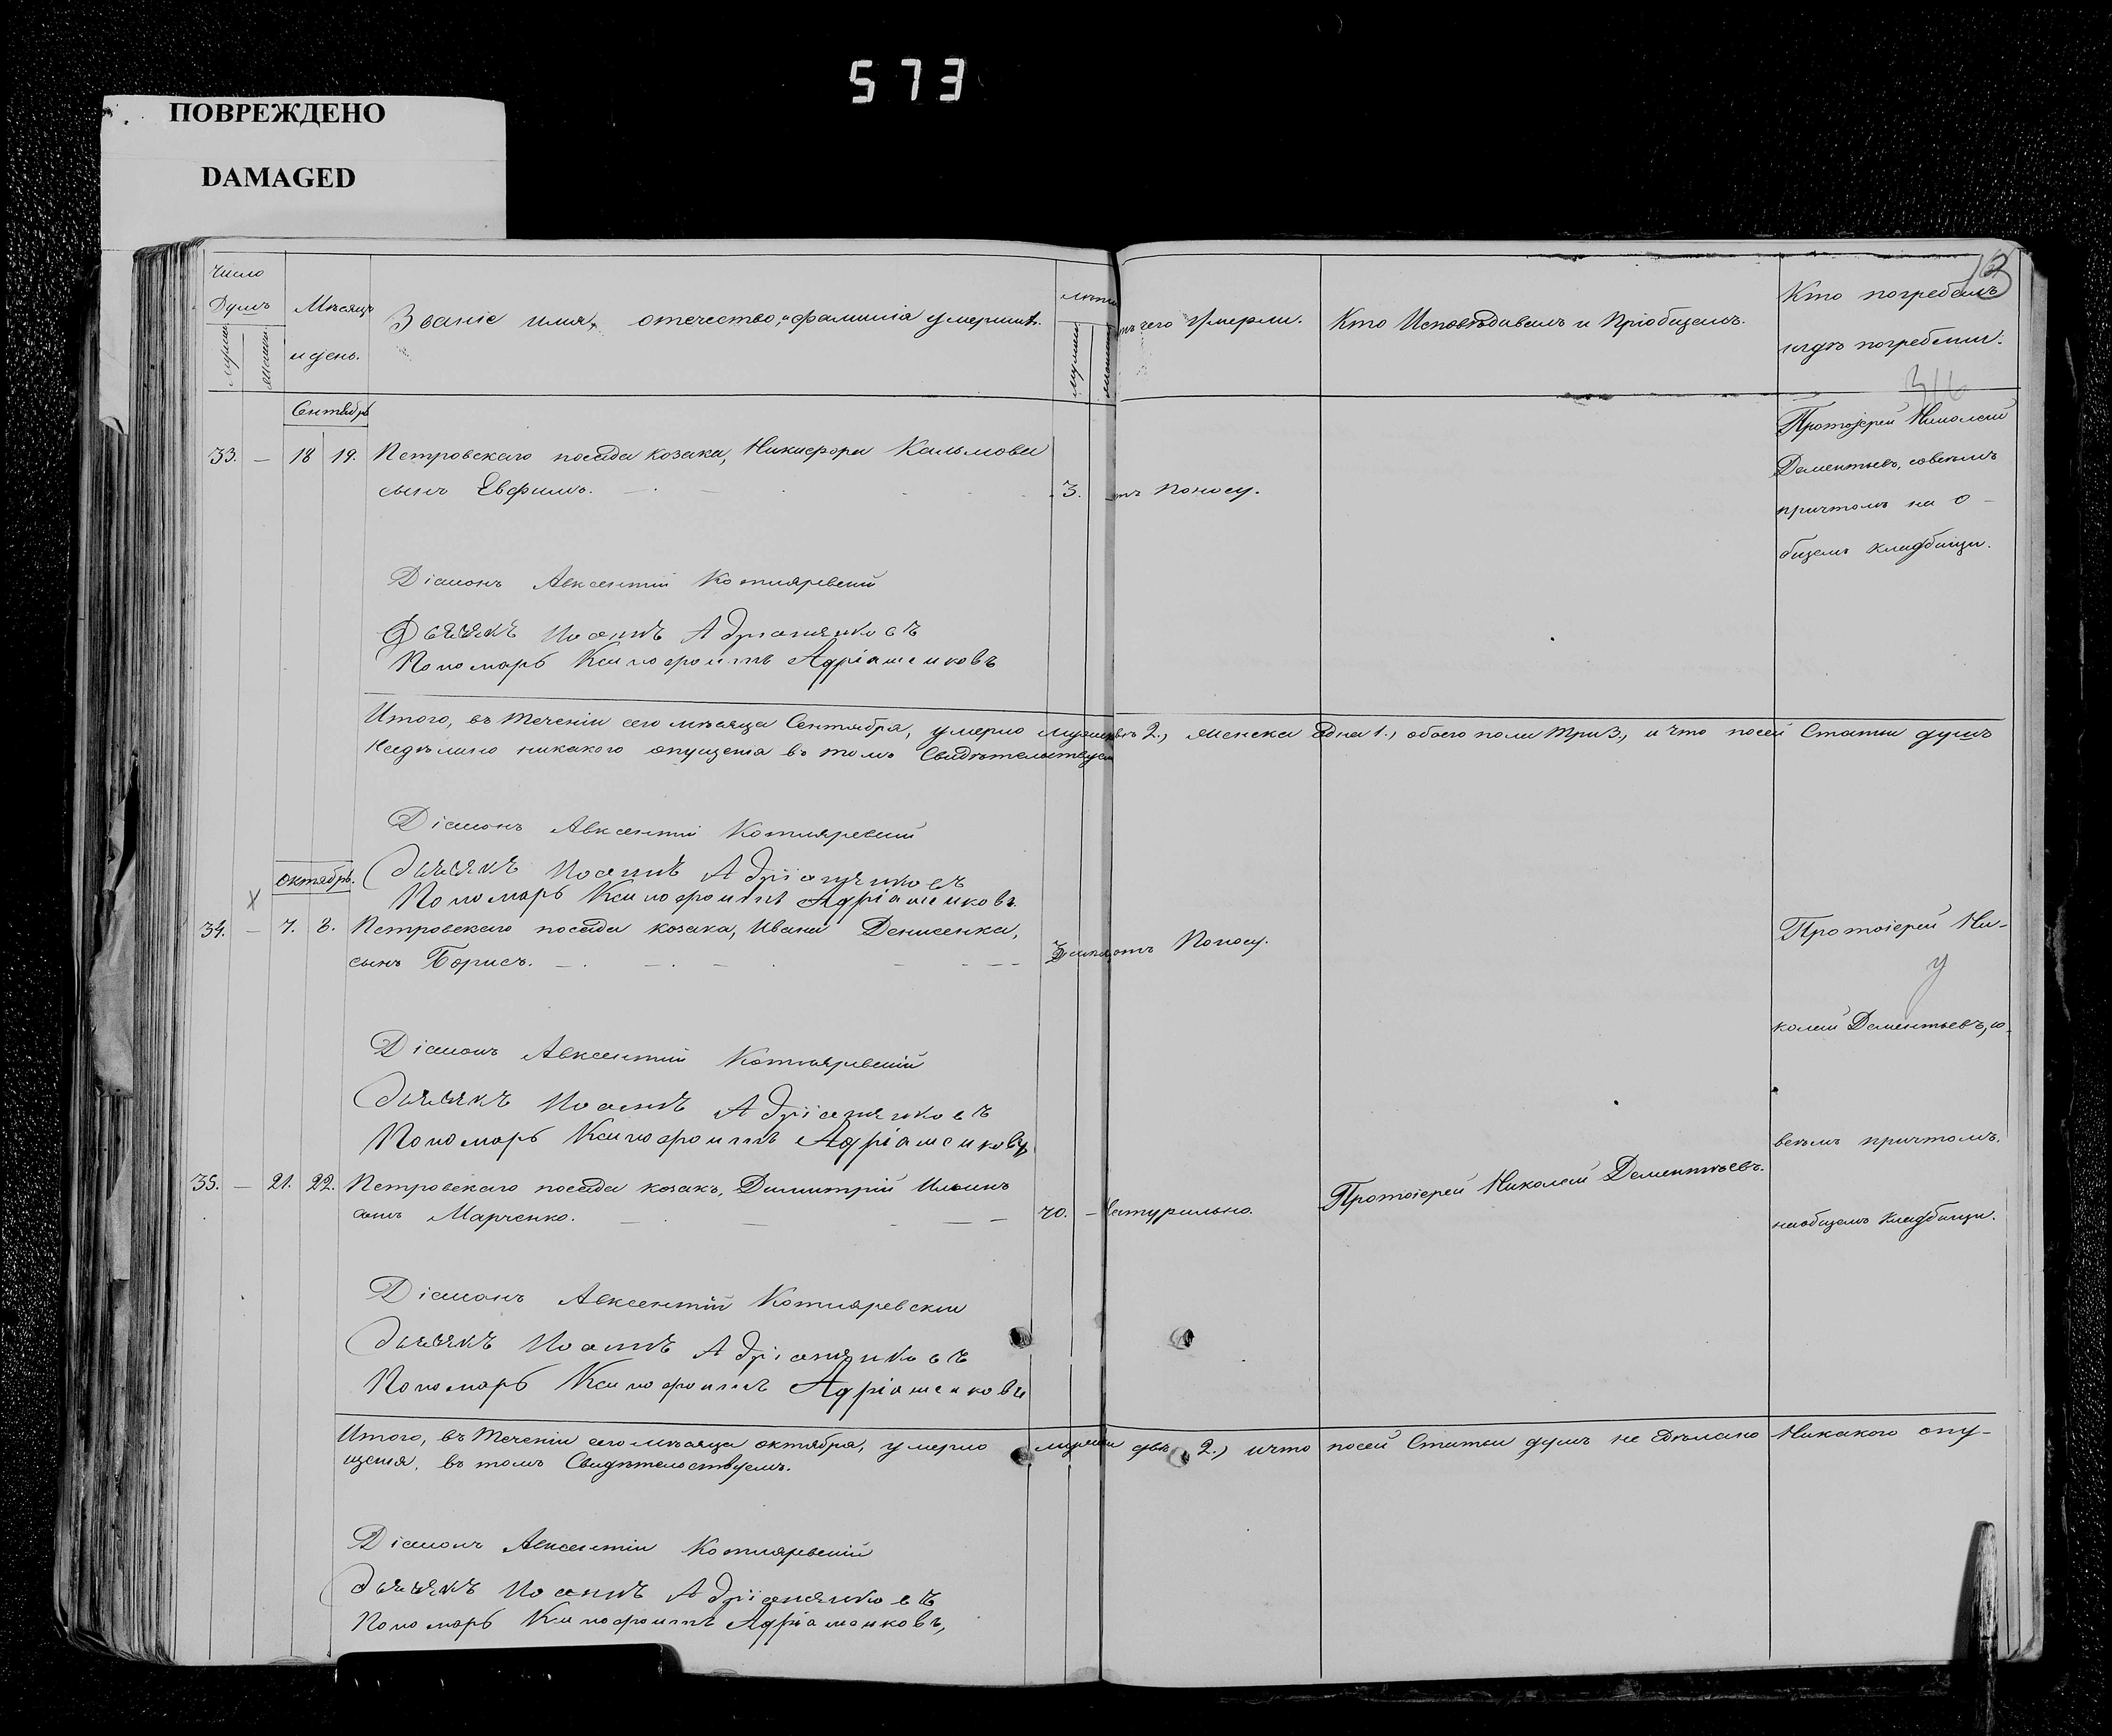 573
ПОВРЕЖДЕНО
DAMAGED
Число
Душъ
Мѣсяцъ
и день.
Званіе имя, отечество, и фамилія умершихъ.
лѣта
отъ чего умерли.
Кто Исповѣдывалъ и Пріобщалъ.
Кто погребалъ
и гдѣ погребены.
Сентябрь
33. — 18 19. Петровскаго посада козака, Никифора Кальмова
сынъ Евфимъ. 3. отъ поносу.
Протоіерей Николай
Дементьевъ, совсѣмъ
причтомъ на о-
бщемъ кладбищи.
Діаконъ Авксентій Котляревскій
Дьячокъ Иоаннъ Адріаненковъ
Пономарь Ксенофонтъ Адріаненковъ
Итого, въ теченіи сего мѣсяца Сентября, умерло мужеска 2., женска одна 1., обоего пола три 3., и что посей Статьи душъ
несдѣлано никакого опущенія въ томъ Свидѣтельствуемъ
Діаконъ Авксентій Котляревскій
Дьячокъ Иоаннъ Адріаненковъ
Пономарь Ксенофонтъ Адріаненковъ
Октябрь.
34. — 7. 8. Петровскаго посада козака, Ивана Денисенка,
сынъ Борисъ. отъ Поносу.
Протоіерей Ни-
колай Дементьевъ, со-
всѣмъ причтомъ,
наобщемъ кладбищи.
Діаконъ Авксентій Котляревскій
Дьячокъ Иоаннъ Адріаненковъ
Пономарь Ксенофонтъ Адріаненковъ
35. — 21. 22. Петровскаго посада козакъ, Димитрій Ильинъ
сынъ Марченко. 70. — Натурально.
Протоіерей Николай Дементьевъ.
Діаконъ Авксентій Котляревскій
Дьячокъ Иоаннъ Адріаненковъ
Пономарь Ксенофонтъ Адріаненковъ
Итого, въ теченіи сего мѣсяца октября, умерло мужеска два 2., ичто посей Статьи душъ не сдѣлано Никакого опу-
щенія, въ томъ Свидѣтельствуемъ.
Діаконъ Авксентій Котляревскій
Дьячокъ Иоаннъ Адріаненковъ
Пономарь Ксенофонтъ Адріаненковъ,